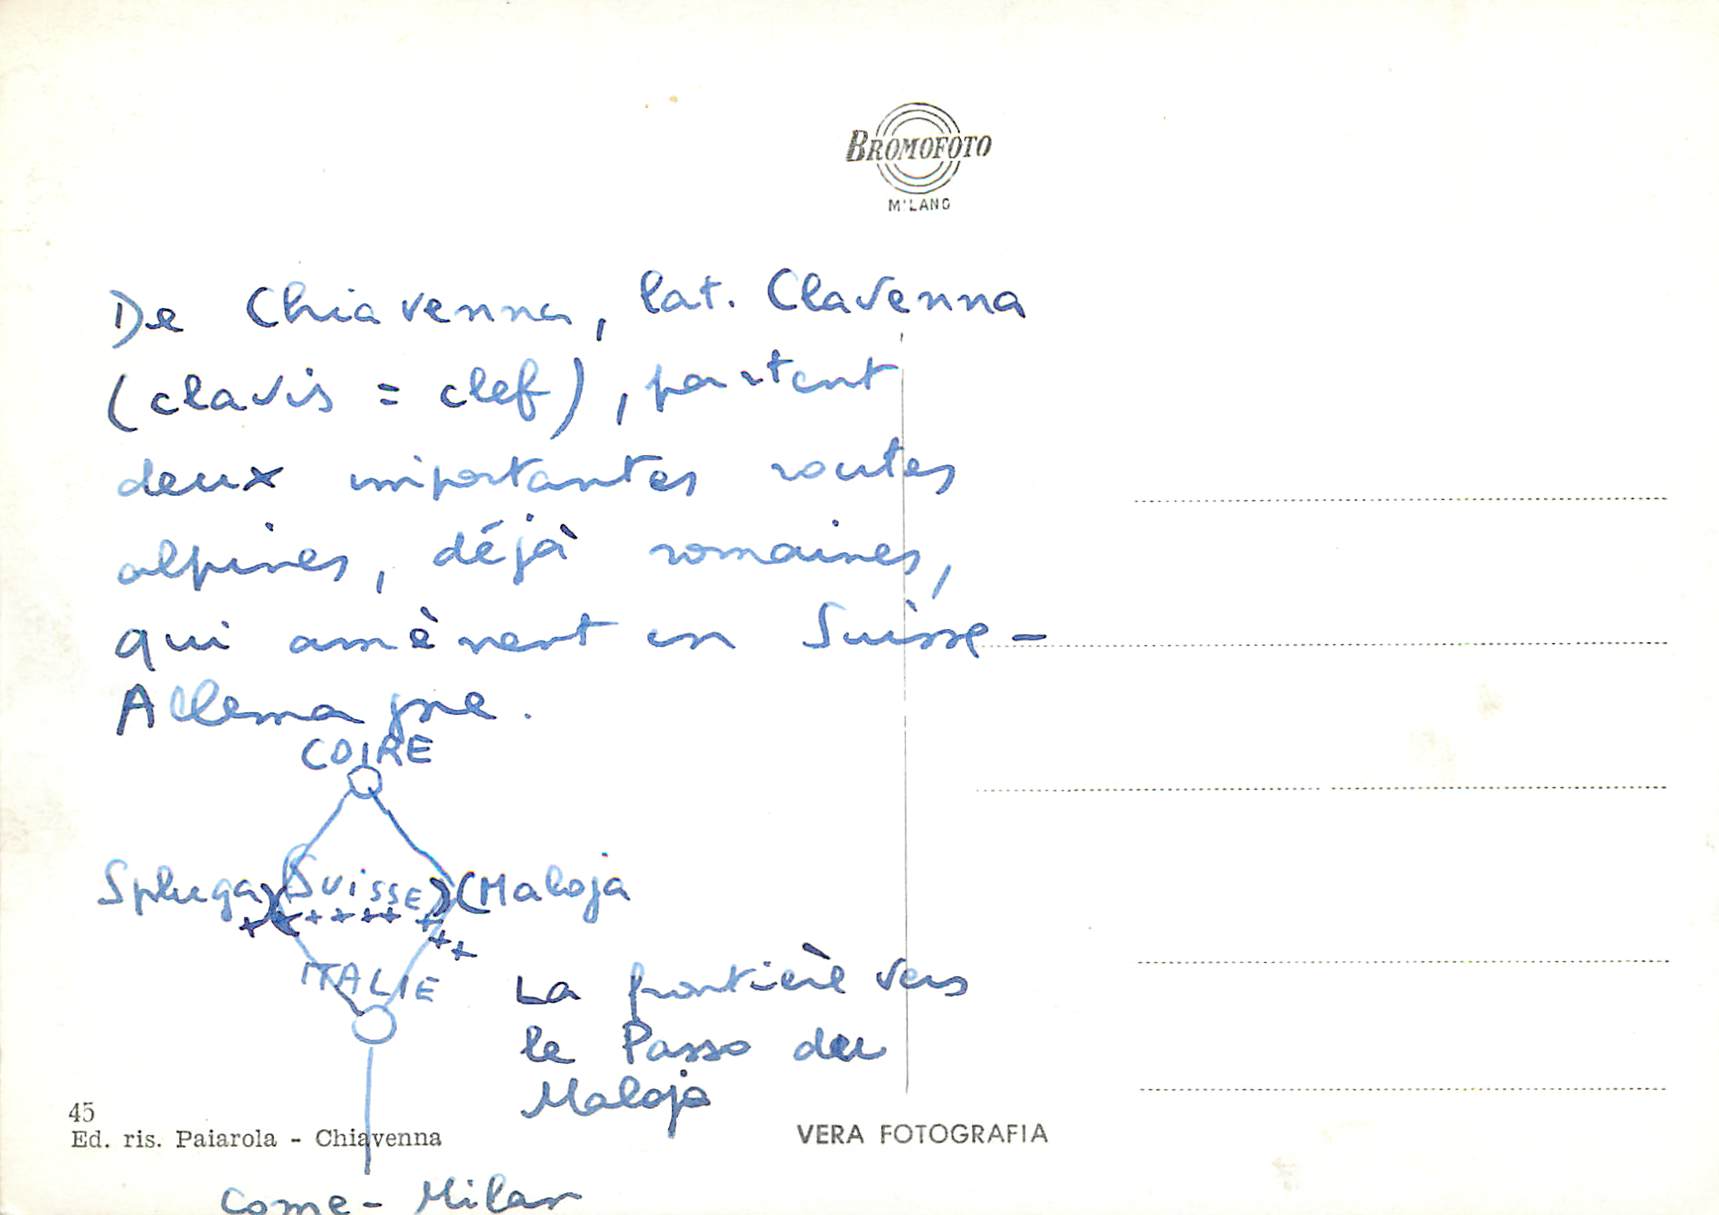 BROMOFOTO
MILANO
De Chiavenna, lat. Clavenna
(clavis = clef), partent
deux importantes routes
alpines, déjà romaines,
qui amènent en Suisse-
Allemagne.
COIRE
Spluga Suisse Maloja
ITALIE
La frontière vers
le Passo du
Maloja
45
Ed. ris. Paiarola - Chiavenna
VERA FOTOGRAFIA
Come - Milan